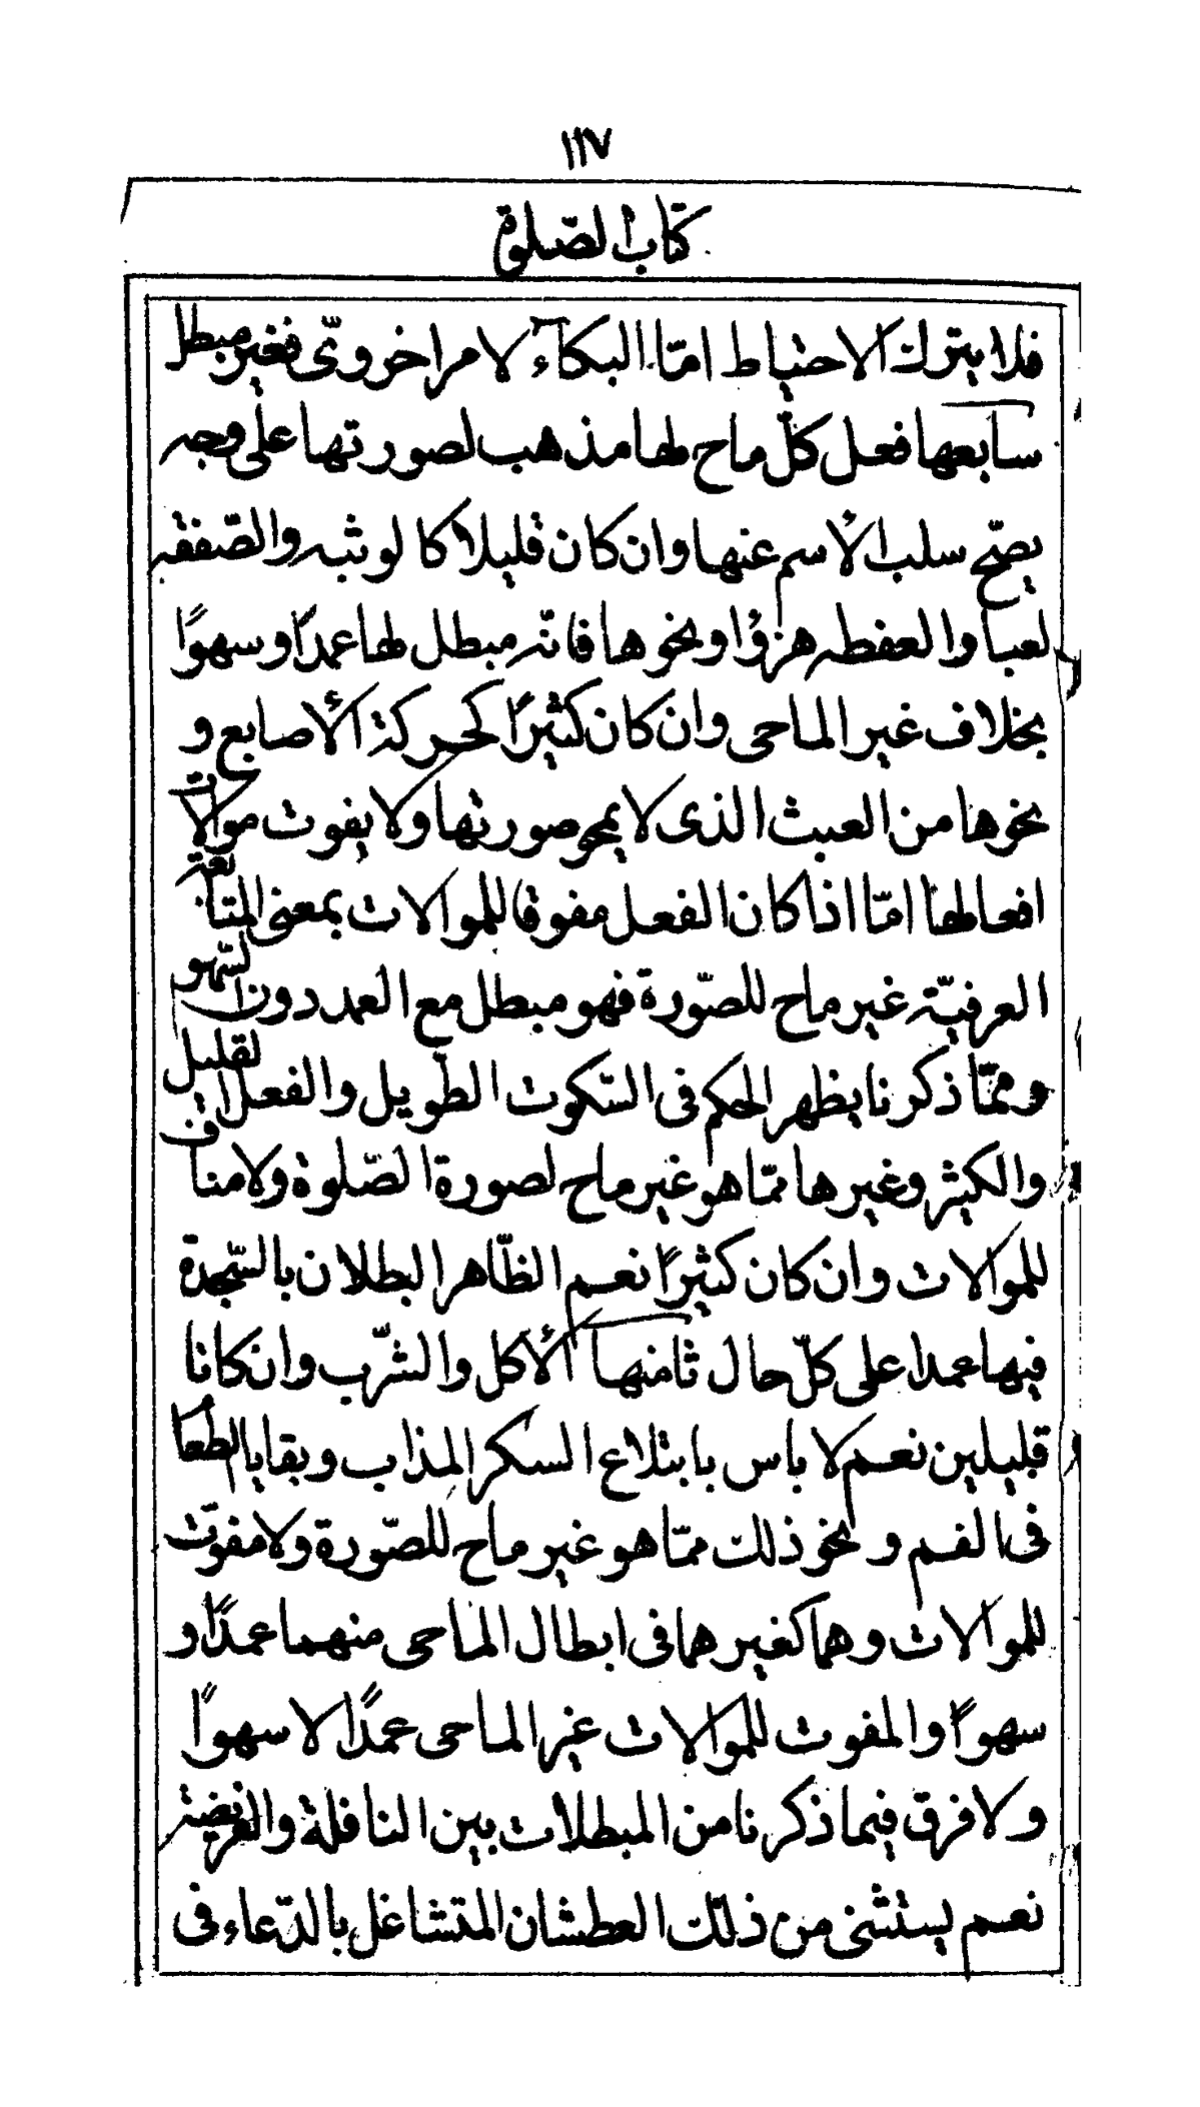 ١١٧
كتاب الصّلوة
فلا يترك الاحتياط امّا البكآء لامر اخروىّ فغير مبطل
سابعها فعل كلّ ماح لها مذهب لصورتها على وجه
يصحّ سلب الأسم عنها وان كان قليلا كالوثبه والصّفقه
لعبا والعفطه هزؤا ونحوها فانّه مبطل لها عمدًا وسهوًا
بخلاف غير الماحى وان كان كثيرًا كحركة الأصابع و
نحوها من العبث الذى لا يمحو صورتها ولا يفوت موالات
افعالها امّا اذا كان الفعل مفوتا للموالات بمعنى المتابعة
العرفيّة غير ماح للصّورة فهو مبطل مع العمد دون السّهو
وممّا ذكرنا يظهر الحكم فى السّكوت الطّويل والفعل القليل
والكثير وغيرها ممّا هو غير ماح لصورة الصّلوة ولا مناف
للموالات وان كان كثيرًا نعم الظّاهر البطلان بالسّجدة
فيها عمدا على كلّ حال ثامنها الأكل والشّرب وان كانا
قليلين نعم لا باس بابتلاع السكر المذاب وبقايا الطعا
فى الفم ونحو ذلك ممّا هو غير ماح للصّورة ولا مفوّت
للموالات وهما كغيرهما فى ابطال الماحى منهما عمدًا و
سهوًا والمفوت للموالات غير الماحى عمدًا لا سهوًا
ولا فرق فيما ذكرنا من المبطلات بين النافلة والفريضة
نعم يستثنى من ذلك العطشان المتشاغل بالدّعاء فى